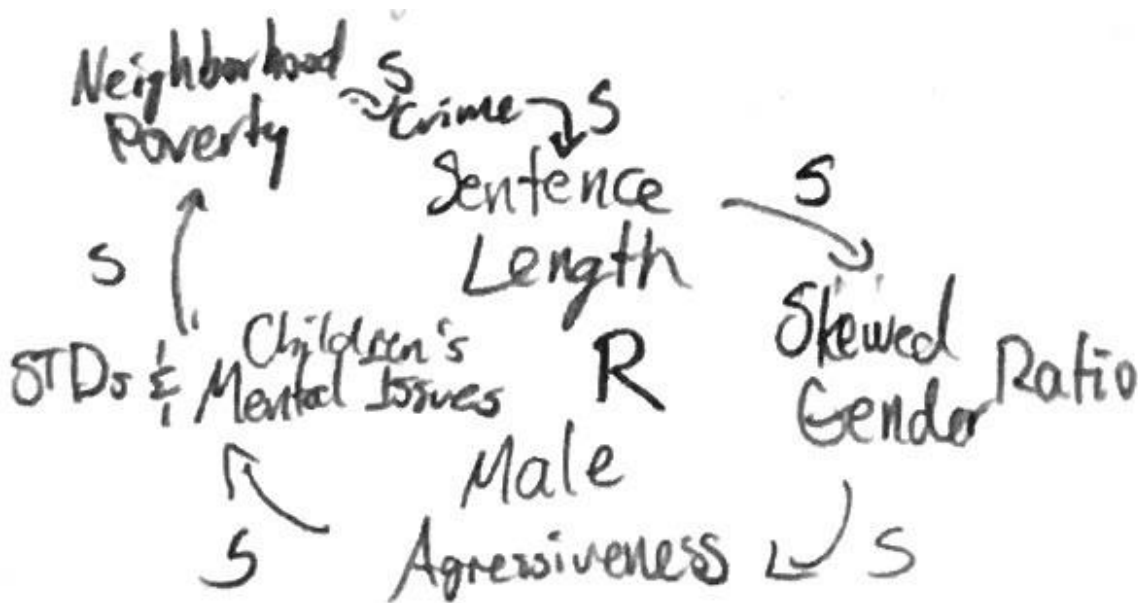 Neighborhood
Poverty
S
Crime
S
Sentence
Length
S
Skewed
Gender Ratio
S
Male
Agressiveness
S
STDs & Children's
Mental Issues
S
R